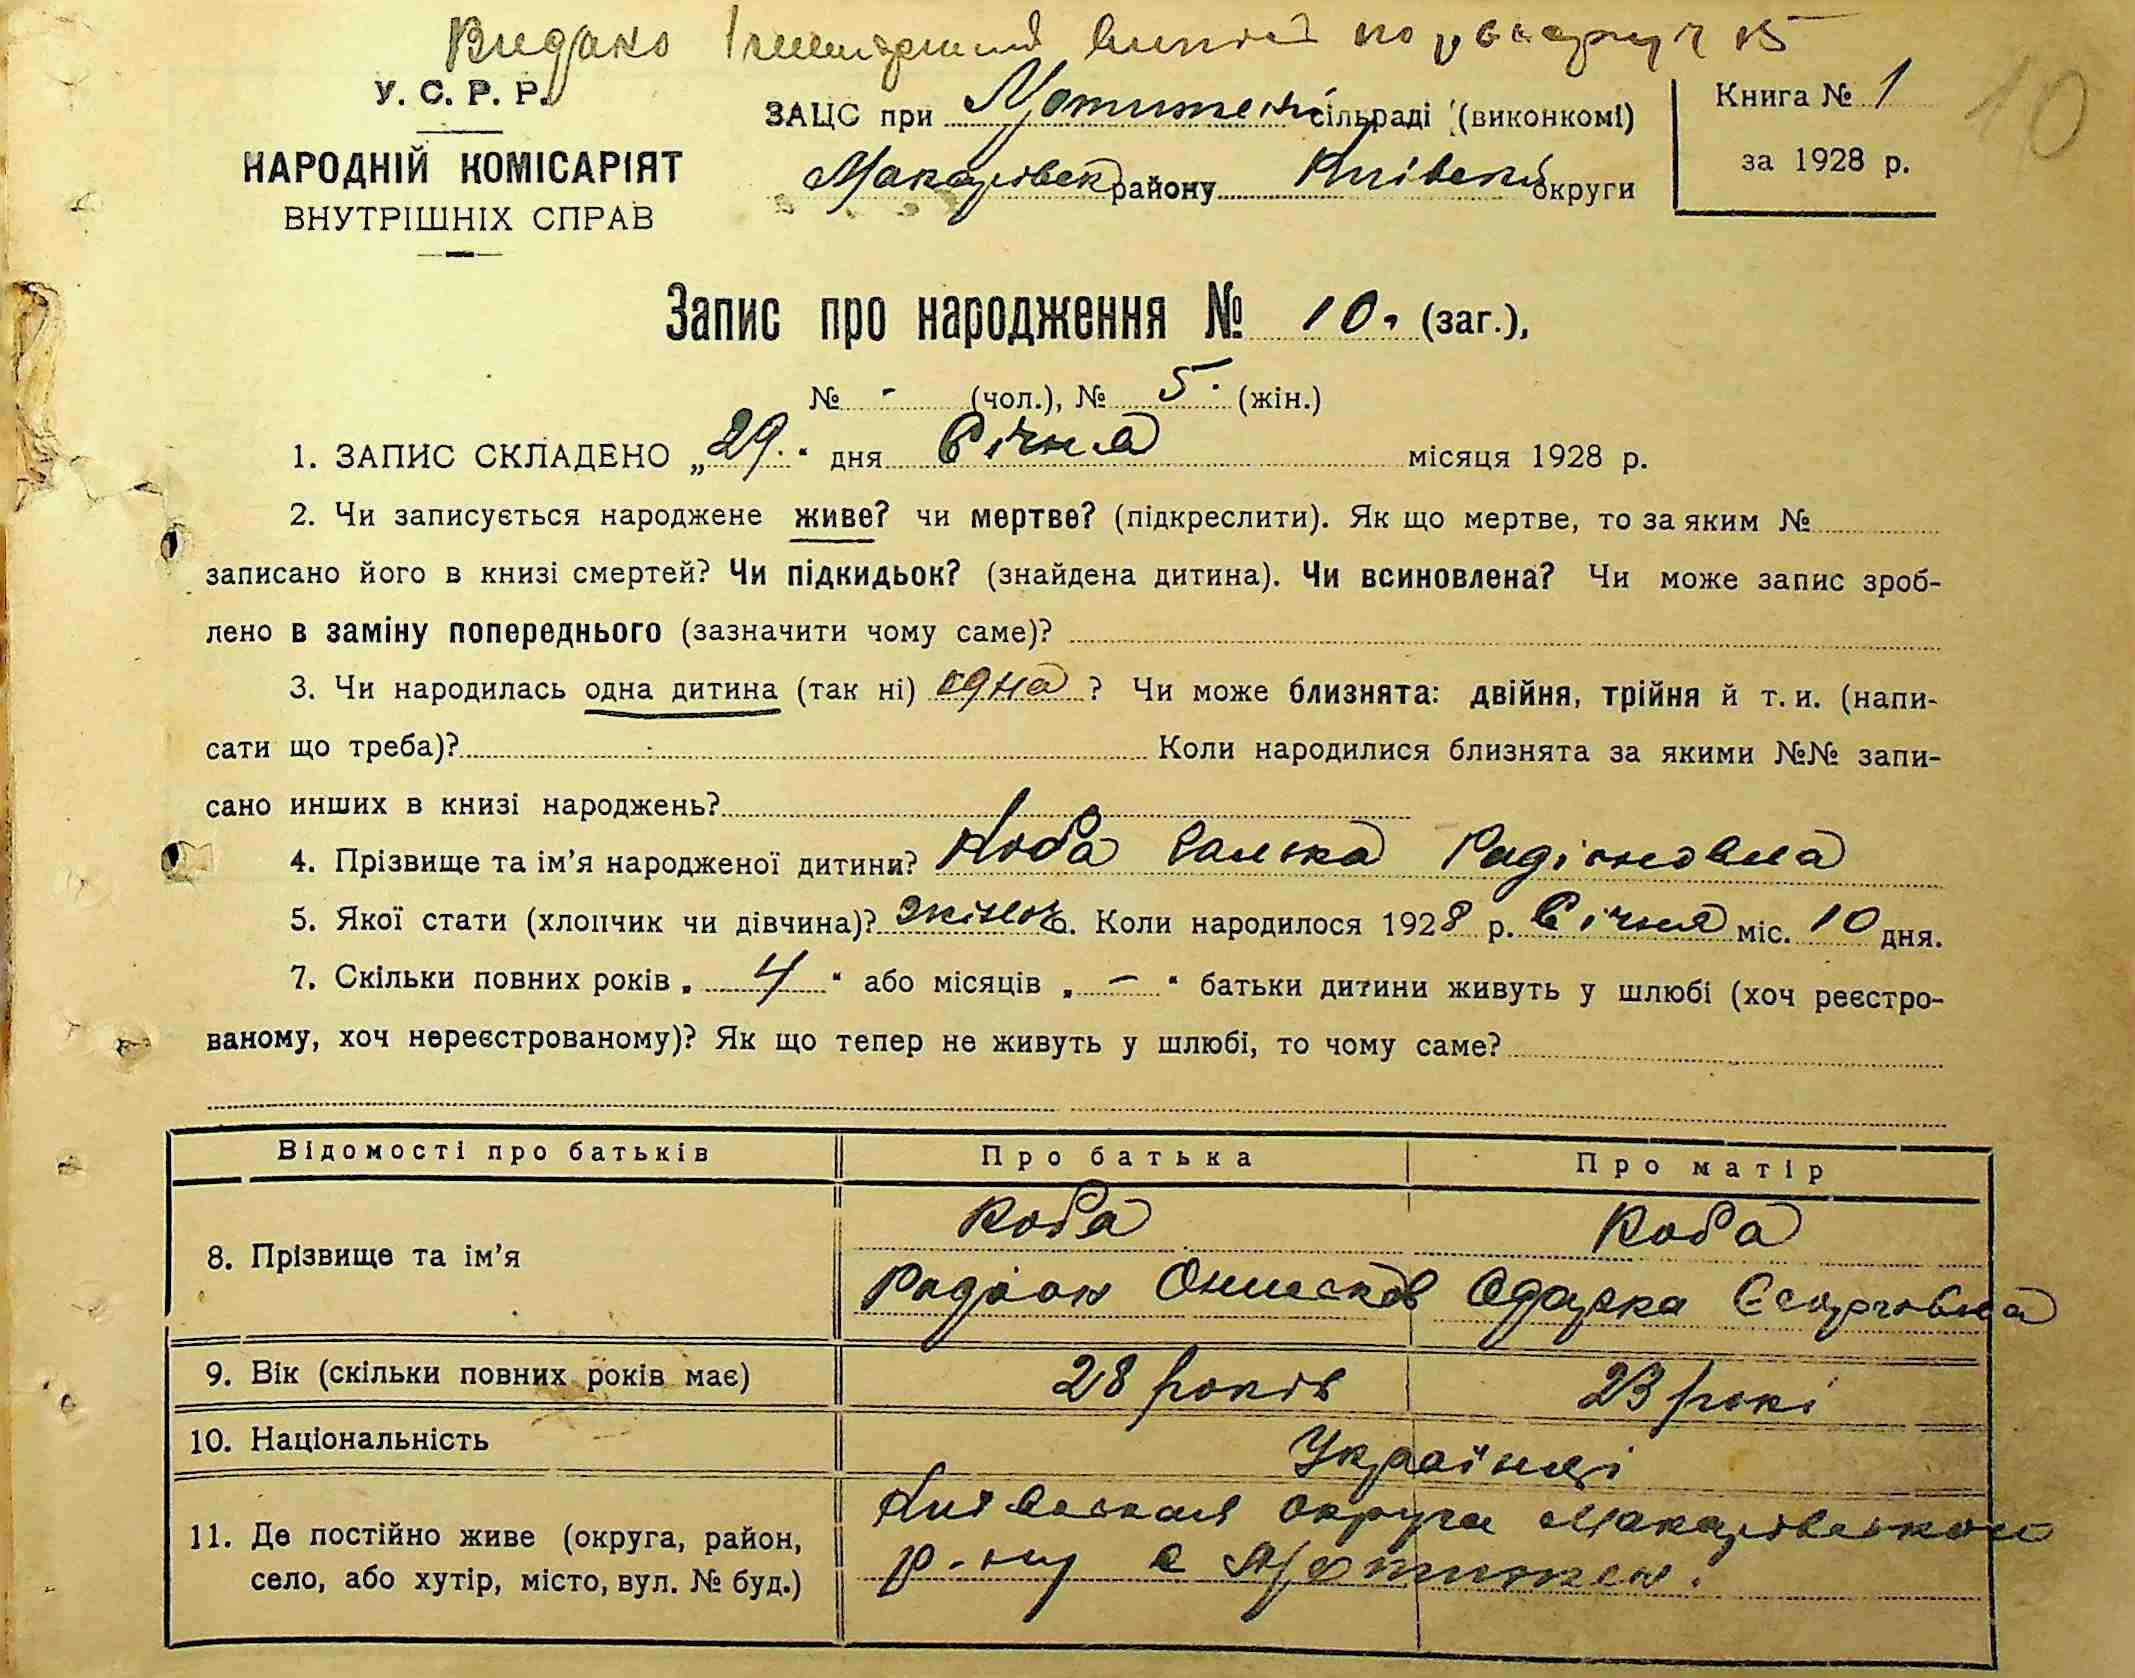 Видано
У. С. Р. Р.
НАРОДНІЙ КОМІСАРІЯТ
ВНУТРІШНІХ СПРАВ
ЗАЦС при Мотижен сільраді (виконкомі)
Макарівск району Київскої округи
Книга № 1
за 1928 р.
10
Запис про народження № 10. (заг.),
№ - (чол.), № 5. (жін.)
1. ЗАПИС СКЛАДЕНО „29.“ дня Січня місяця 1928 р.
2. Чи записується народжене живе? чи мертве? (підкреслити). Як що мертве, то за яким №
записано його в книзі смертей? Чи підкидьок? (знайдена дитина). Чи всиновлена? Чи може запис зроб-
лено в заміну попереднього (зазначити чому саме)?
3. Чи народилась одна дитина (так ні) одна ? Чи може близнята: двійня, трійня й т. и. (напи-
сати що треба)? Коли народилися близнята за якими №№ запи-
сано инших в книзі народжень?
4. Прізвище та ім’я народженої дитини? Коба Галька Радіоновна
5. Якої стати (хлопчик чи дівчина)? жіноч. Коли народилося 1928 р. Січня міс. 10 дня.
7. Скільки повних років „ 4 “ або місяців „ — “ батьки дитини живуть у шлюбі (хоч реєстро-
ваному, хоч нереєстрованому)? Як що тепер не живуть у шлюбі, то чому саме?
Відомості про батьків Про батька Про матір
8. Прізвище та ім’я Коба Коба
Радіон Онисков Одарка Єгоровна
9. Вік (скільки повних років має) 28 років 23 рокі
10. Національність Українці
11. Де постійно живе (округа, район,
село, або хутір, місто, вул. № буд.)
округи Макаровского
р-ну с Мотижен.